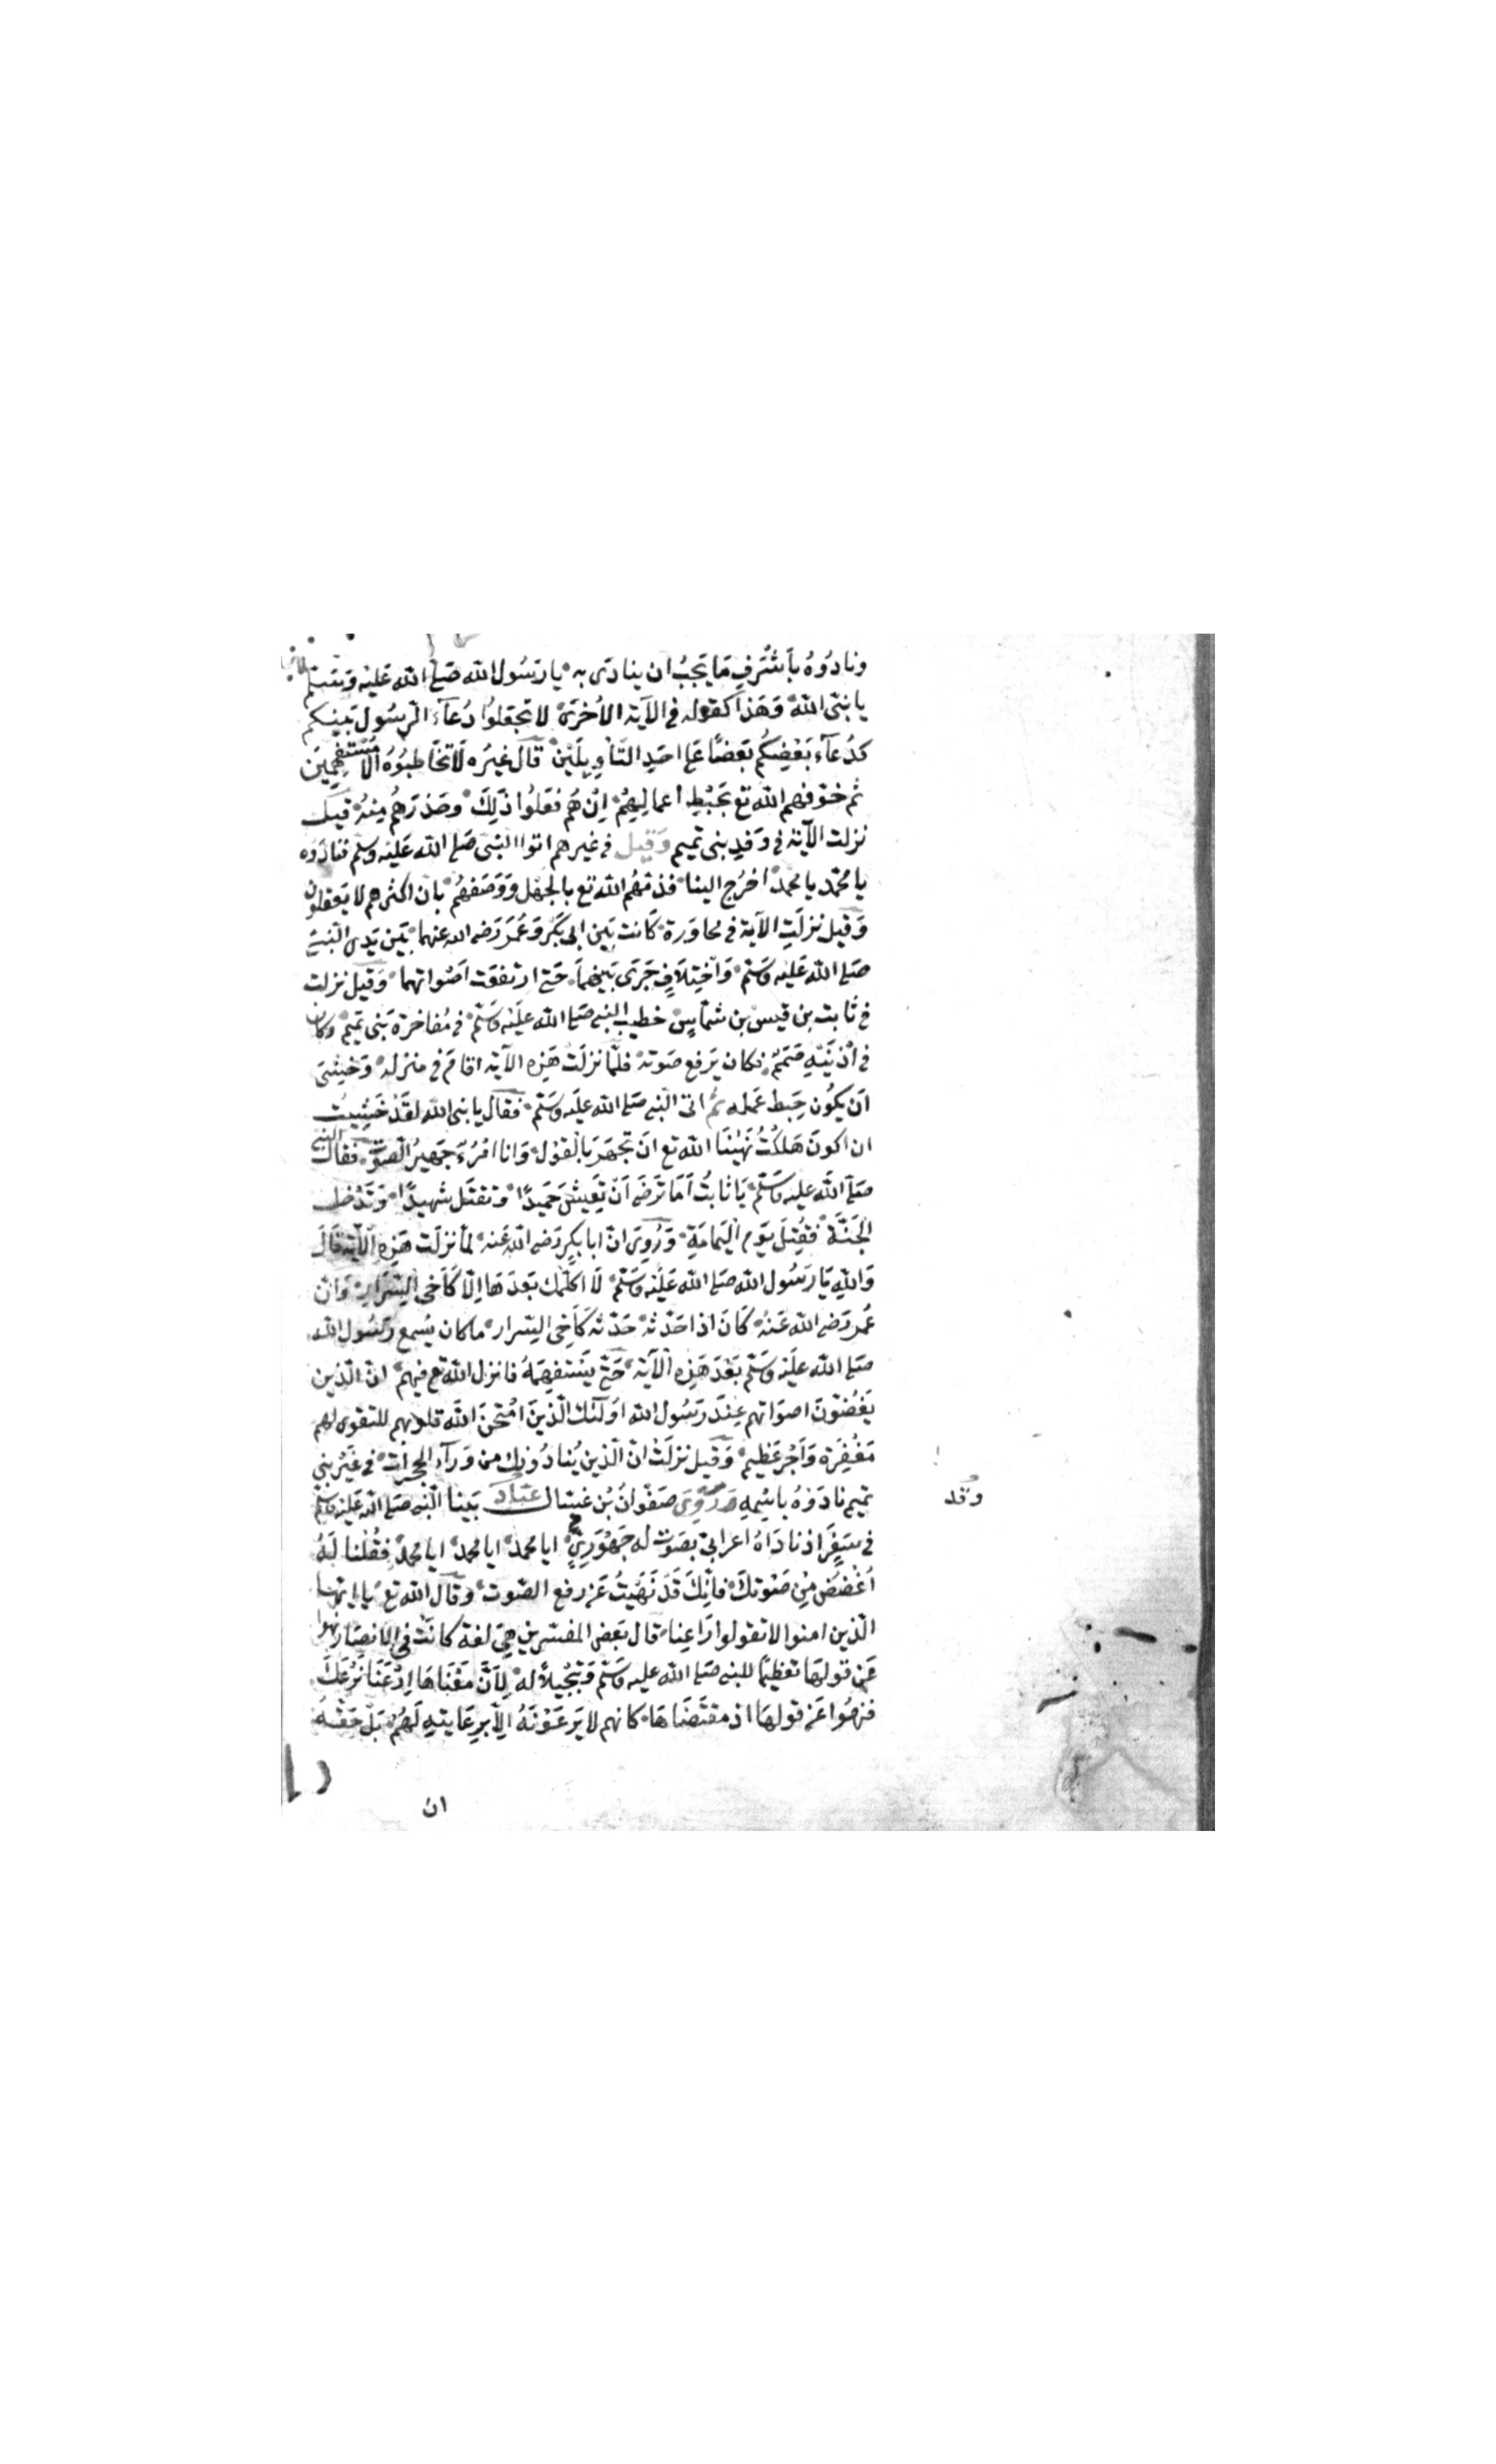 ونادُوهُ بأَشْرَفِ مَا يَجبُ ان ينادَى به يا رَسُول الله صَلى الله عَليْه وَسَلم
يا نبىّ الله وَهَذا كقوله فى الآية الأُخرَى لا تجعَلوُا دُعآءَ الرسُول بَينكم
كدُعآء بَعْضِكُم بَعضًا عَلى احَدِ التَأويلَيْن قالَ غيَره لَا تخَاطبُوهُ الّا مُسْتَفهِمِينَ
ثم خوّفهم الله تع بحَبْطِ اعمالِهِمْ اِنْ هُم فعَلُوا ذَلِكَ وحَذرَهُم مِنهُ قيل
نزلت الآية فى وَفدِ بنى تميم وَقيل فى غيرهم اتوا النبّى صَلى الله عَليْه وسَلم فنادَوه
يا محمّد يا محمّد اخرُج الينا فذمّهُم الله تع بالجهْل وَوَصَفهُمْ بأن اكثرهم لا يَعقلون
وَقيل نزلَتِ الآية فى محاوَرة كانت بَين ابى بَكر وَعُمَر رَضى الله عنهما بَين يَدى النّبى
صَلى الله عَليه وسَلم وَاْختِلَافٍ جَرَى بَينهمَا حَتى ارتفعَت اَصْواتهما وَقيل نزلت
فى ثابت بن قيسْ بن شمّاسٍ خطيب النبى صَلى الله عَليْه وَسَلّم فى مُفاخرة بَنى تميمْ وكان
فى اُذْنَيْهِ صَمَمٌ فكان يَرفع صَوتهْ فلمّا نزلَتْ هَذِه الآية اقامَ فى منزله وَخَيشَى
اَن يكوُن حَبِط عَمله ثُم اتى النّبى صَلى الله عليه وسَلّم فقال يا نبى الله لقَدْ خَشِيتُ
ان اكونَ هَلكْتُ نَهٰينَا الله تع ان نجهَرَ بالْقوْل وَانا امْرُءٌ جَهيرُ الصَوت فقال النبى
صَلى الله عليه وَسَلّمْ يَا ثابتُ اَمَا تَرضَى اَنْ تَعِيشَ حَميدًا وَتقتَل شهيدًا وَتَدْخل
الجَنّة فقُتِلَ يَوم اليَمامَةِ وَرُوِىَ انّ ابا بكرٍ رَضى الله عَنه لما نزلَت هَذِهِ الآية قالَ
وَاللهِ يَا رَسُول الله صَلى الله عَليْه وَسَلّم لَا اكلّمك بَعدَهَا اِلّا كَاَخى السِّرَارِ وَانّ
عُمر رَضى الله عَنهُ كَانَ اذا حَدّثهُ حَدّثهُ كَاَخِى السِّرار مَا كان يُسمع رَسُول الله
صَلى الله عَليْه وَسَلّم بَعْدَ هَذِه الْآية حَتّى يَسْتفهِمَهُ فانزل الله تع فيهمْ انّ الّذين
يَغُضوّنَ اصوَاتهم عِندَ رسُول الله اُولَئك الّذينَ امْتحَنَ الله قلوبهم للتقوى لهم
مَغْفِرَة وَاَجْر عَظيم وَقيل نزلَتْ انّ الّذين يُنادُونك من وَرآء الحجرات فى غَيْر بَنى
تميم نادَوْهُ باسْمِهِ وَرَوَى صَفْوانُ بْن عَسّال بَينا النّبى صَلى الله عَليْه وسَلم
فى سَفَرٍ اذ نادَاهُ اعرابىّ بصَوْت له جَهْوَرِىّ ايا محمد ايا محمد ايا محمد فقُلنا لَهُ
اُغْضُضْ مِنْ صَوْتكَ فاِنّكَ قَدْ نَهُيتُ عَن رَفع الصّوت وقالَ الله تع يَا ايّها
الّذين امنوا لا تقولوا رَاعِنا قال بَعض المفسّرين هِىَ لغة كانَتْ فى الانصَار نهوا
عَن قولهَا تعْظيمًا للنبى صَلى الله عليه وَسَلّم وَتَبْجيلاً له لِاَنّ مَعْنَاهَا اِرْعَنا نَرْعَكَ
فنهُوا عَن قولهَا اذ مقتَضَاهَا كانهم لا يَرعَوْنَهُ اِلّا برِعَايتهِ لَهُمْ بَلْ حَقهُ
وقد
ان